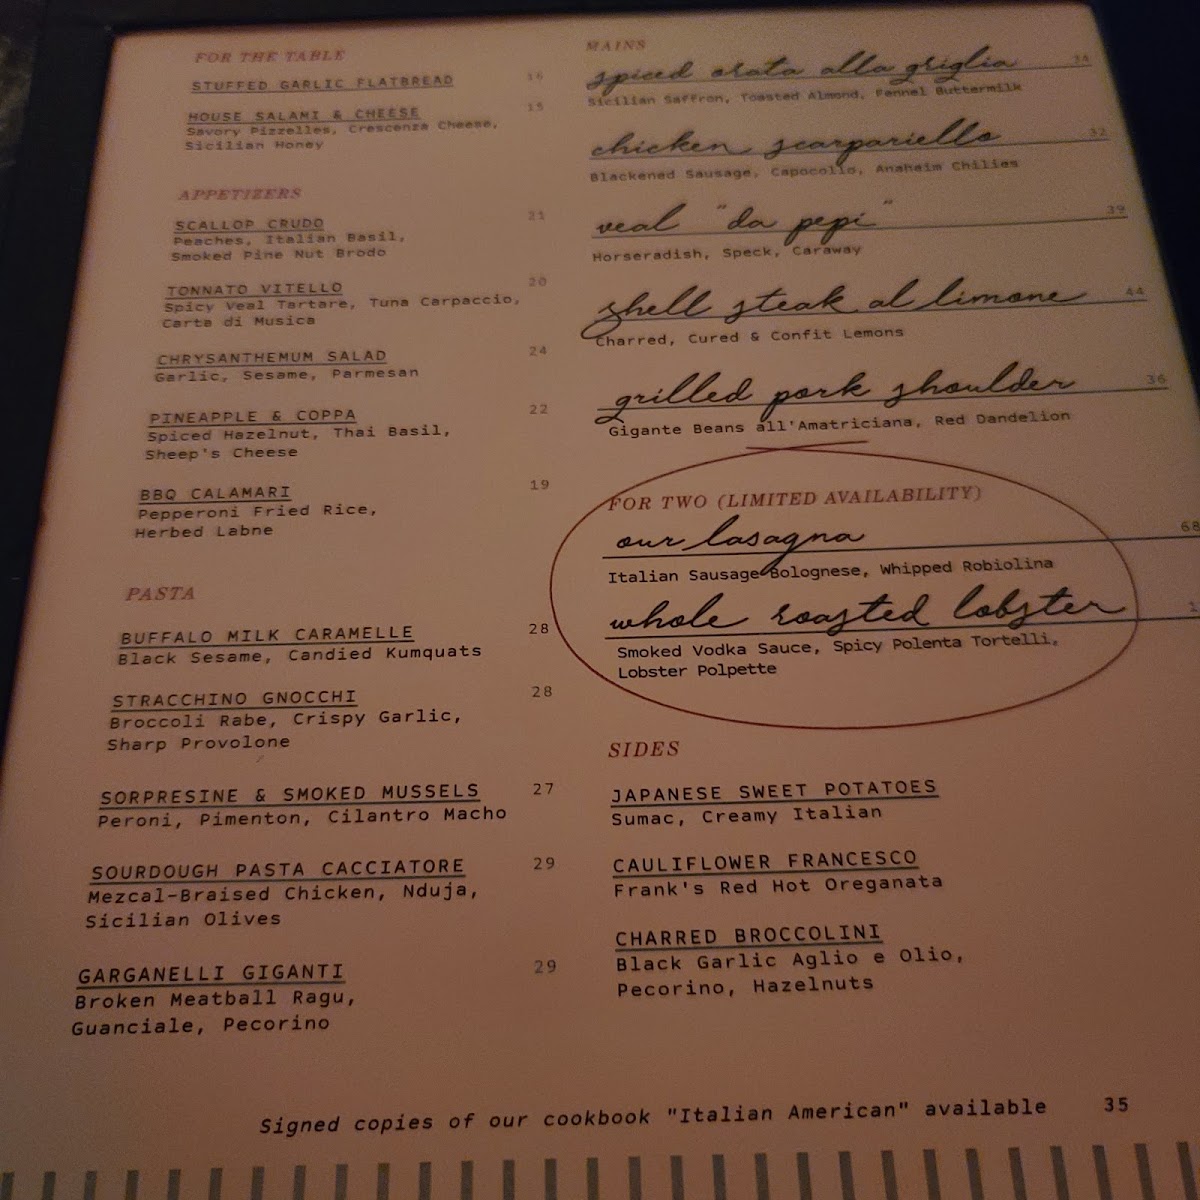 FOR THE TABLE
STUFFED GARLIC FLATBREAD 16
HOUSE SALAMI & CHEESE 15
Savory Pizzelles, Crescenza Cheese,
Sicilian Honey
APPETIZERS
SCALLOP CRUDO 21
Peaches, Italian Basil,
Smoked Pine Nut Brodo
TONNATO VITELLO 20
Spicy Veal Tartare, Tuna Carpaccio,
Carta di Musica
CHRYSANTHEMUM SALAD 24
Garlic, Sesame, Parmesan
PINEAPPLE & COPPA 22
Spiced Hazelnut, Thai Basil,
Sheep's Cheese
BBQ CALAMARI 19
Pepperoni Fried Rice,
Herbed Labne
PASTA
BUFFALO MILK CARAMELLE 28
Black Sesame, Candied Kumquats
STRACCHINO GNOCCHI 28
Broccoli Rabe, Crispy Garlic,
Sharp Provolone
SORPRESINE & SMOKED MUSSELS 27
Peroni, Pimenton, Cilantro Macho
SOURDOUGH PASTA CACCIATORE 29
Mezcal-Braised Chicken, Nduja,
Sicilian Olives
GARGANELLI GIGANTI 29
Broken Meatball Ragu,
Guanciale, Pecorino
MAINS
spiced orata alla griglia
Sicilian Saffron, Toasted Almond, Fennel Buttermilk
chicken scarpariello 32
Blackened Sausage, Capocollo, Anaheim Chilies
veal "da pepi" 39
Horseradish, Speck, Caraway
shell steak al limone 44
Charred, Cured & Confit Lemons
grilled pork shoulder 36
Gigante Beans all'Amatriciana, Red Dandelion
FOR TWO (LIMITED AVAILABILITY)
our lasagna 68
Italian Sausage Bolognese, Whipped Robiolina
whole roasted lobster
Smoked Vodka Sauce, Spicy Polenta Tortelli,
Lobster Polpette
SIDES
JAPANESE SWEET POTATOES
Sumac, Creamy Italian
CAULIFLOWER FRANCESCO
Frank's Red Hot Oreganata
CHARRED BROCCOLINI
Black Garlic Aglio e Olio,
Pecorino, Hazelnuts
Signed copies of our cookbook "Italian American" available 35